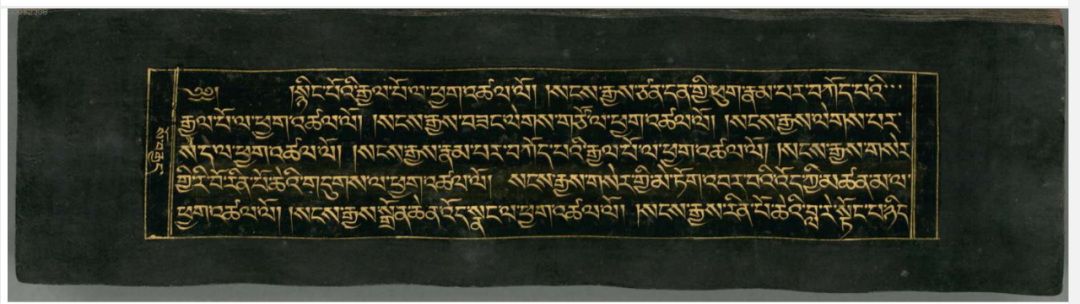 ༄༅། །སྙིང་པོའི་རྒྱལ་པོ་ལ་ཕྱག་འཚལ་ལོ། །སངས་རྒྱས་ཙནྡན་གྱི་ཕུག་རྣམ་པར་བཀོད་པའི་
རྒྱལ་པོ་ལ་ཕྱག་འཚལ་ལོ། །སངས་རྒྱས་བཟང་ལེགས་གཙོ་ལ་ཕྱག་འཚལ་ལོ། །སངས་རྒྱས་ལེགས་པར་
སེ་ད་ལ་ཕྱག་འཚལ་ལོ། །སངས་རྒྱས་རྣམ་པར་བཀོད་པའི་རྒྱལ་པོ་ལ་ཕྱག་འཚལ་ལོ། །སངས་རྒྱས་གསེར་
གྱི་རི་བོ་རིན་པོ་ཆེའི་གདུགས་ལ་ཕྱག་འཚལ་ལོ། སངས་རྒྱས་གསེར་གྱི་མེ་ཏོག་འབར་བའི་འོད་ཀྱི་མཚན་མ་ལ་
ཕྱག་འཚལ་ལོ། །སངས་རྒྱས་སྒྲོན་ཆེན་འོད་སྣང་ལ་ཕྱག་འཚལ་ལོ། །སངས་རྒྱས་རིན་པོ་ཆེའི་བླ་རེ་སྟོང་པ་ཉིད་